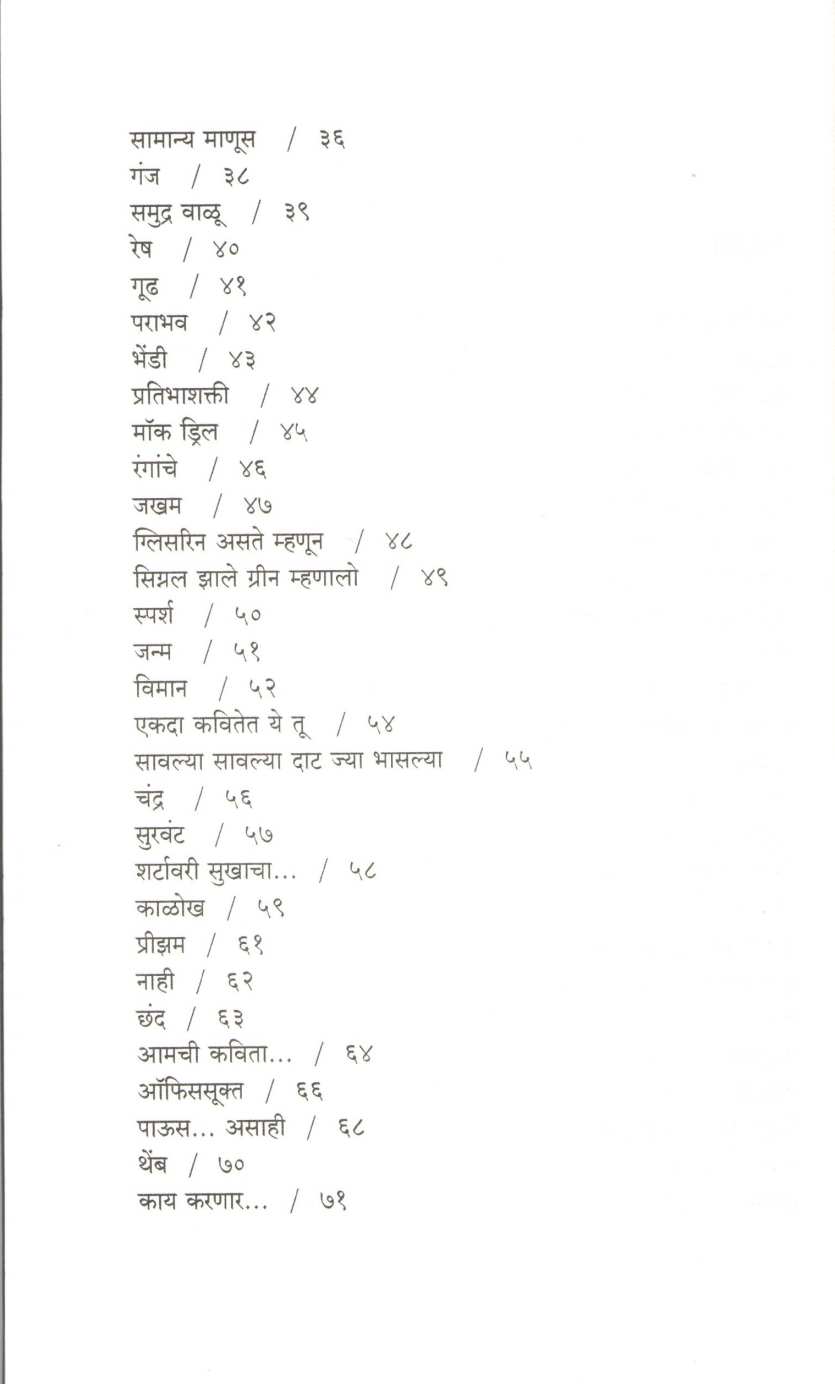 सामान्य माणूस / ३६
गंज / ३८
समुद्र वाळू / ३९
रेष / ४०
गूढ / ४१
पराभव / ४२
भेंडी / ४३
प्रतिभाशक्ती / ४४
मॉक ड्रिल / ४५
रंगांचे / ४६
जखम / ४७
ग्लिसरिन असते म्हणून / ४८
सिग्नल झाले ग्रीन म्हणालो / ४९
स्पर्श / ५०
जन्म / ५१
विमान / ५२
एकदा कवितेत ये तू / ५४
सावल्या सावल्या दाट ज्या भासल्या / ५५
चंद्र / ५६
सुरवंट / ५७
शर्टावरी सुखाचा... / ५८
काळोख / ५९
प्रीझम / ६१
नाही / ६२
छंद / ६३
आमची कविता... / ६४
ऑफिससूक्त / ६६
पाऊस... असाही / ६८
थेंब / ७०
काय करणार... / ७१